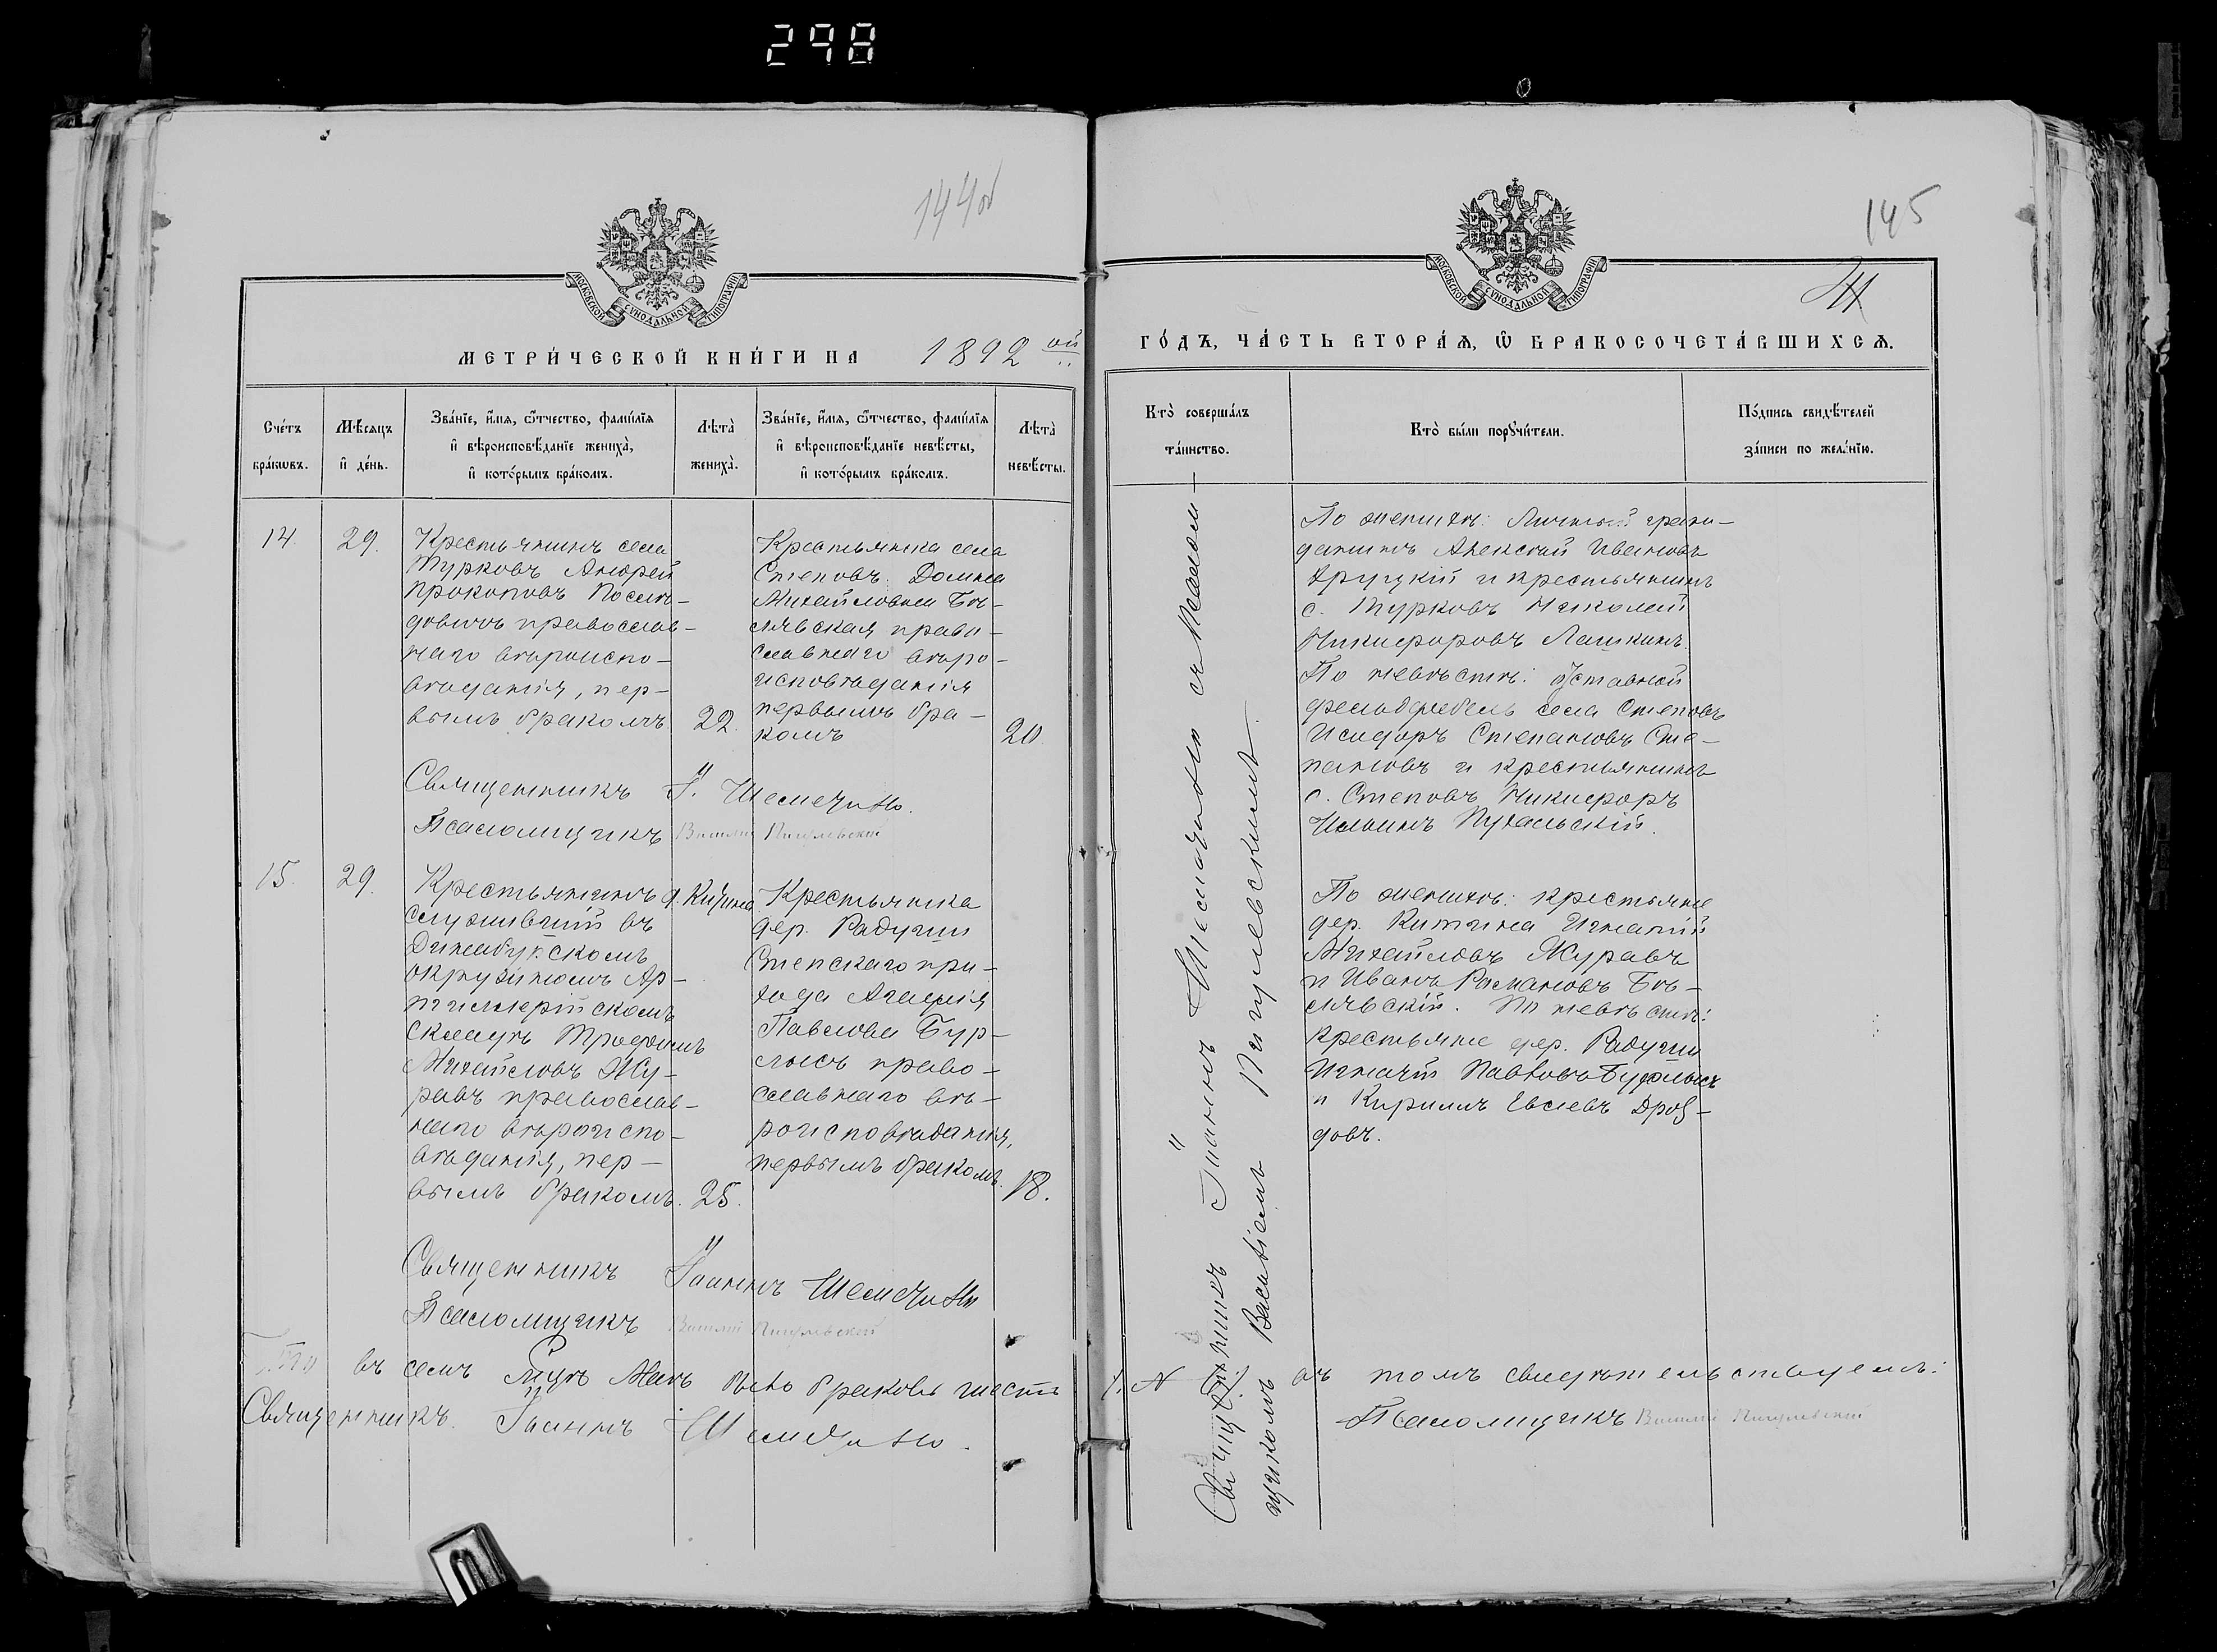 298
144об
МОСКОВСКОЙ СУНОДАЛЬНОЙ ТИПОГРАФІИ
МЕТРИ́ЧЕСКОЙ КНИ́ГИ НА 1892 ой
Сче́тъ бра́кѡвъ.
Мѣ́сяцъ и҆ де́нь.
Зва́нїе, и҆́мѧ, ѻ҆́тчество, фами́лїѧ и҆ вѣроисповѣ́данїе жениха̀, и҆ кото́рымъ бра́комъ.
Лѣта̀ жениха̀.
Зва́нїе, и҆́мѧ, ѻ҆́тчество, фами́лїѧ и҆ вѣроисповѣ́данїе невѣ́сты, и҆ кото́рымъ бра́комъ.
Лѣта̀ невѣ́сты.
14
29.
Крестьянинъ села
Турковъ Андрей
Прокоповъ
православ-
наго вѣроиспо-
вѣданія, пер-
вымъ бракомъ
22.
Крестьянка села
Степовъ: Домна
Михайловна Бѣ-
лявская право-
славнаго вѣро-
исповѣданія
первымъ бра-
комъ
20.
Священникъ І.
Псаломщикъ
15.
29.
Крестьянинъ д.
служившій въ
Динабургскомъ
окружномъ Ар-
тиллерійскомъ
складѣ Трофимъ
Михайловъ Жу-
равъ православ-
наго вѣроиспо-
вѣданія, пер-
вымъ бракомъ.
25.
Крестьянка
дер. Радучи
Степскаго при-
хода Агафія
Павлова Бур-
лысъ право-
славнаго вѣ-
роисповѣданія,
первымъ бракомъ.
18.
Священникъ Іоаннъ
Псаломщикъ
въ семъ было браковъ шесть
Священникъ. Іоаннъ
145
МОСКОВСКОЙ СУНОДАЛЬНОЙ ТИПОГРАФІИ
ГО́ДЪ, ЧА́СТЬ ВТОРА́Ѧ, Ѽ БРАКОСОЧЕТА́ВШИХСѦ.
Кто̀ соверша́лъ та́инство.
Кто̀ бы́ли порꙋчи́тели.
По́дпись свидѣ́телей за́писи по жела́нїю.
Священникъ Іоаннъ съ псалом-
щикомъ Василіемъ
По женихѣ: Личный граж-
данинъ Алексѣй Ивановъ
Друцкій и крестьянинъ
с. Турковъ Николай
Никифоровъ Лашкинъ.
По невѣстѣ:
фельдфебель села Степовъ
Исидоръ Степановъ Сте-
пановъ и крестьянинъ
с. Степовъ Никифоръ
Ильинъ
По женихѣ: крестьяне
дер. Китина Игнатій
Михайловъ Журавъ
и Иванъ Романовъ Бѣ-
лявскій. По невѣстѣ:
крестьяне дер. Радучи
Игнатій Павловъ Бурлысъ
и Кириллъ Евсіевъ Дроз-
довъ.
въ томъ свидѣтельствуемъ:
Псаломщикъ